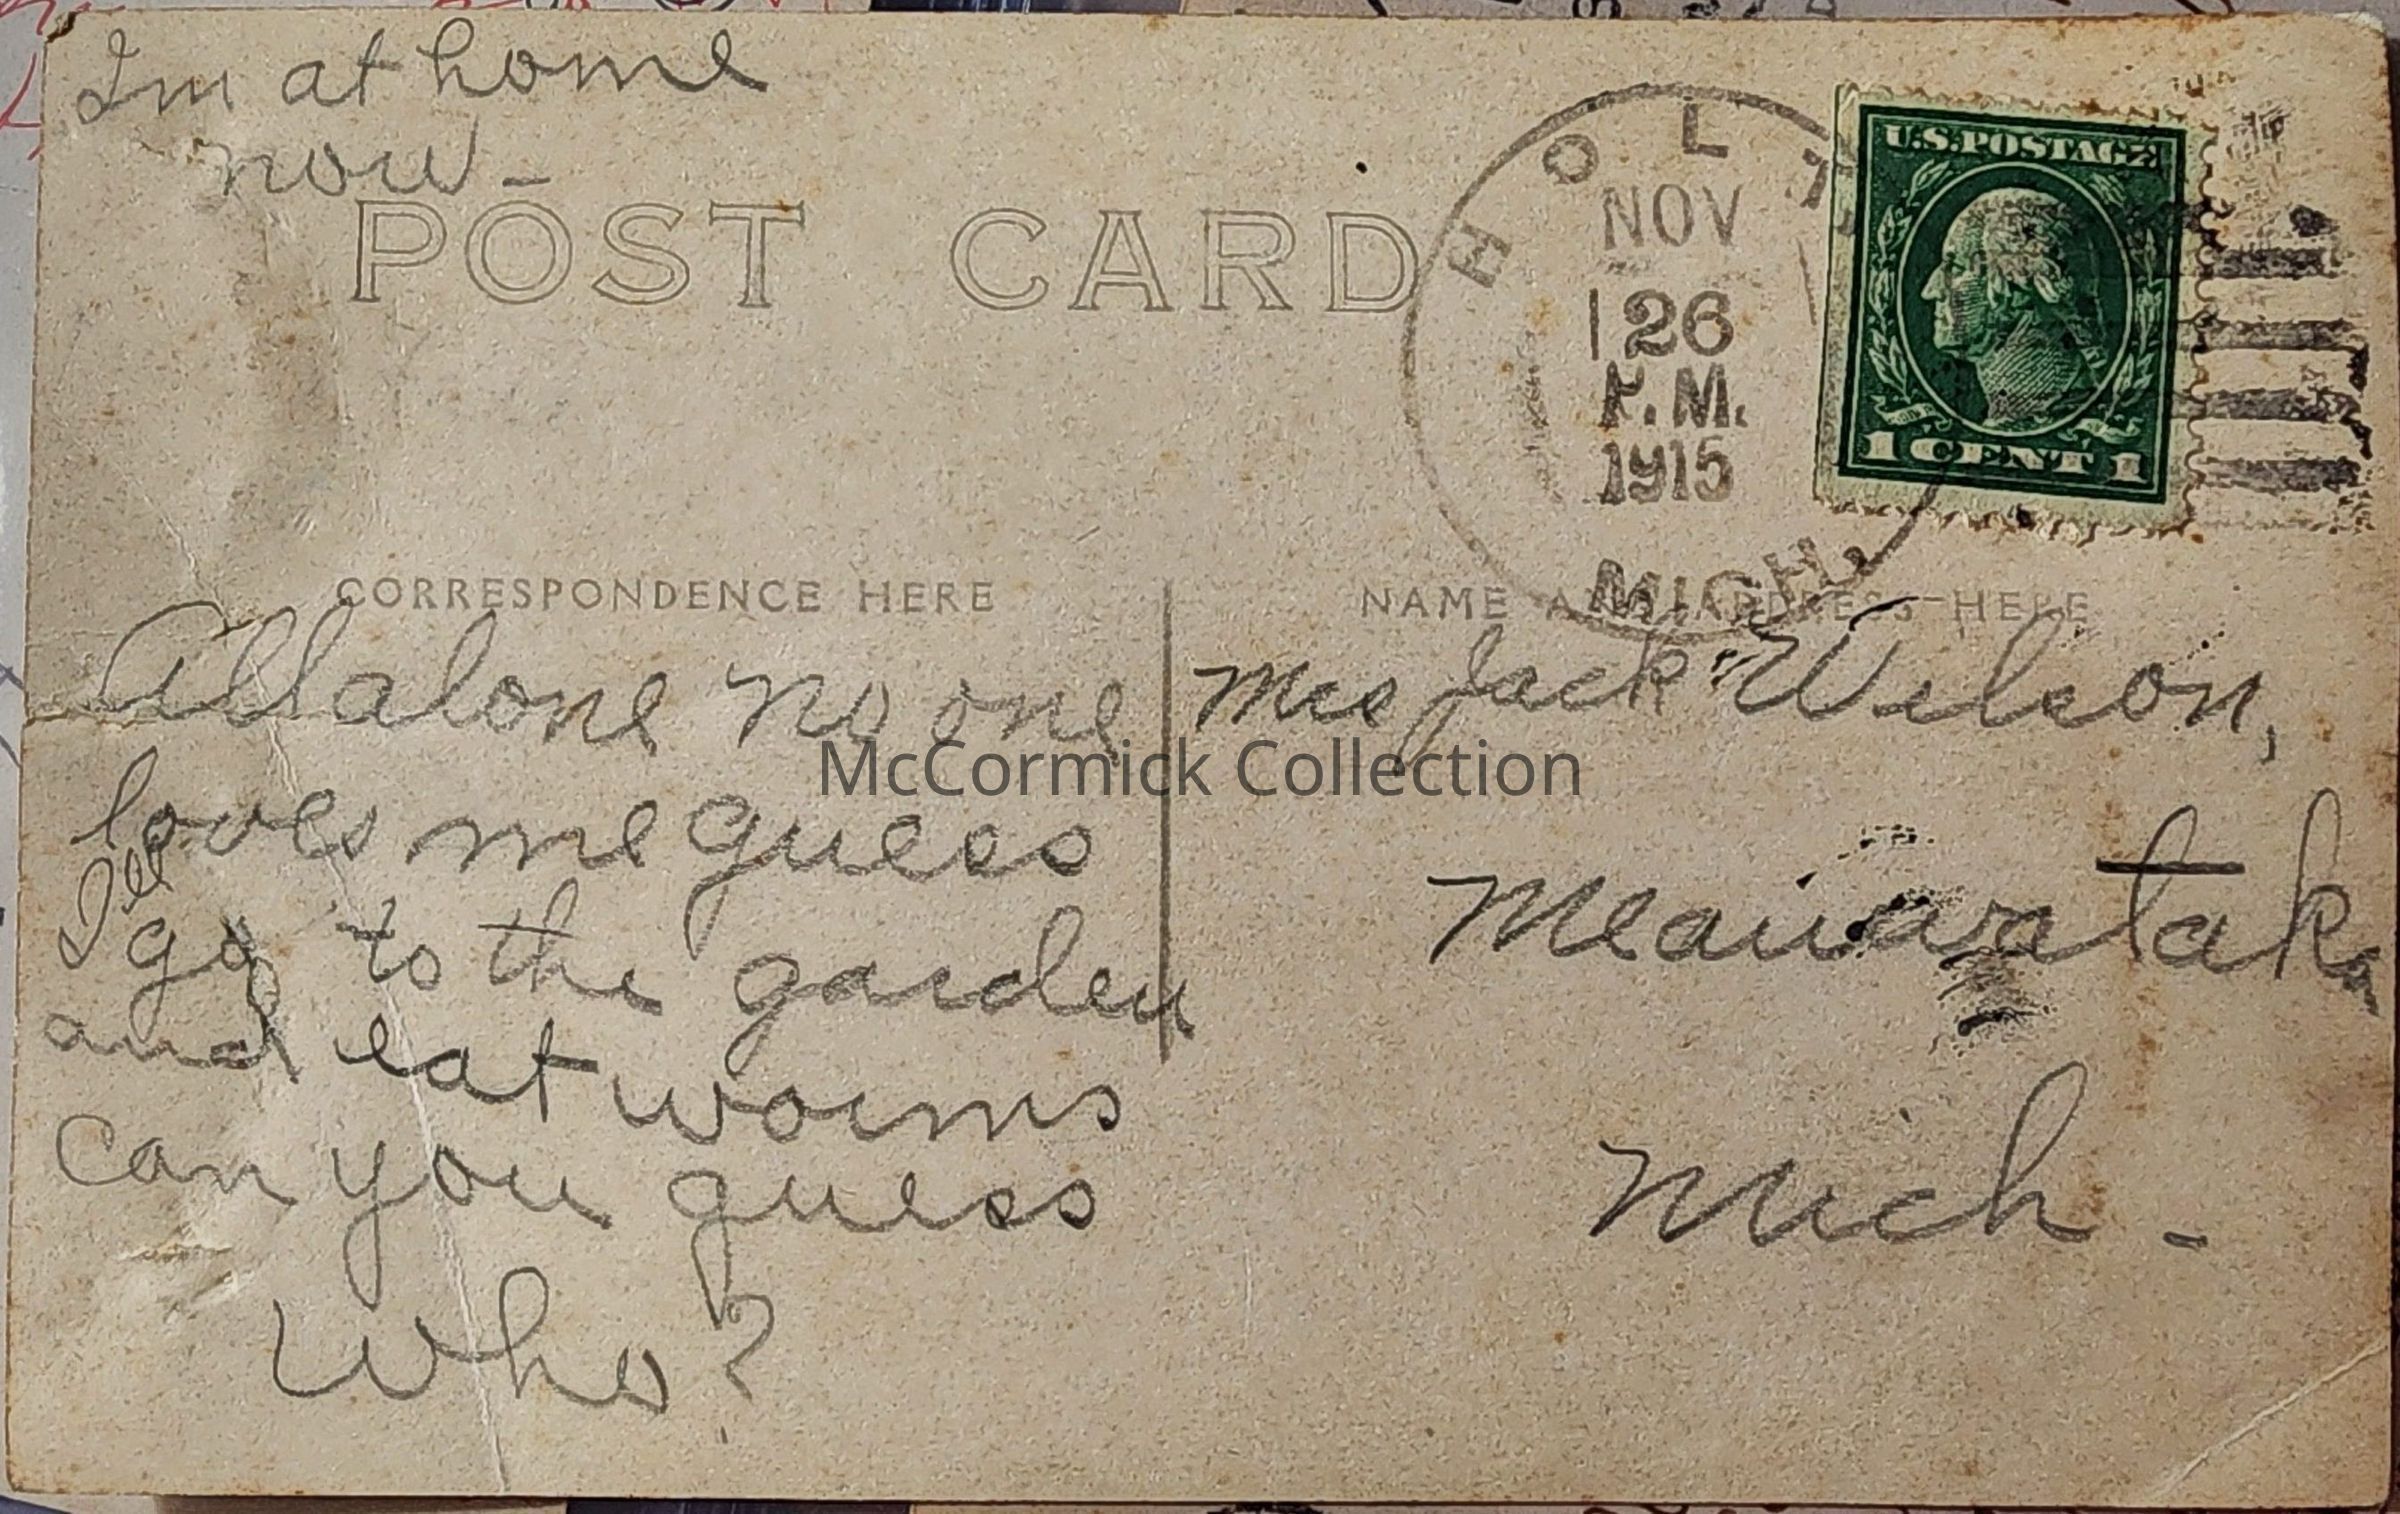 Im at home
now_
POST CARD
HOLT
NOV
26
P.M.
1915
MICH.
U.S.POSTAGE
1 CENT 1
CORRESPONDENCE HERE
NAME AND ADDRESS HERE
All alone no one
loves me guess
I'll go to the garden
and eat worms
can you guess
Who?
Mrs Jack Wilson,
Meauwataka
Mich -
McCormick Collection